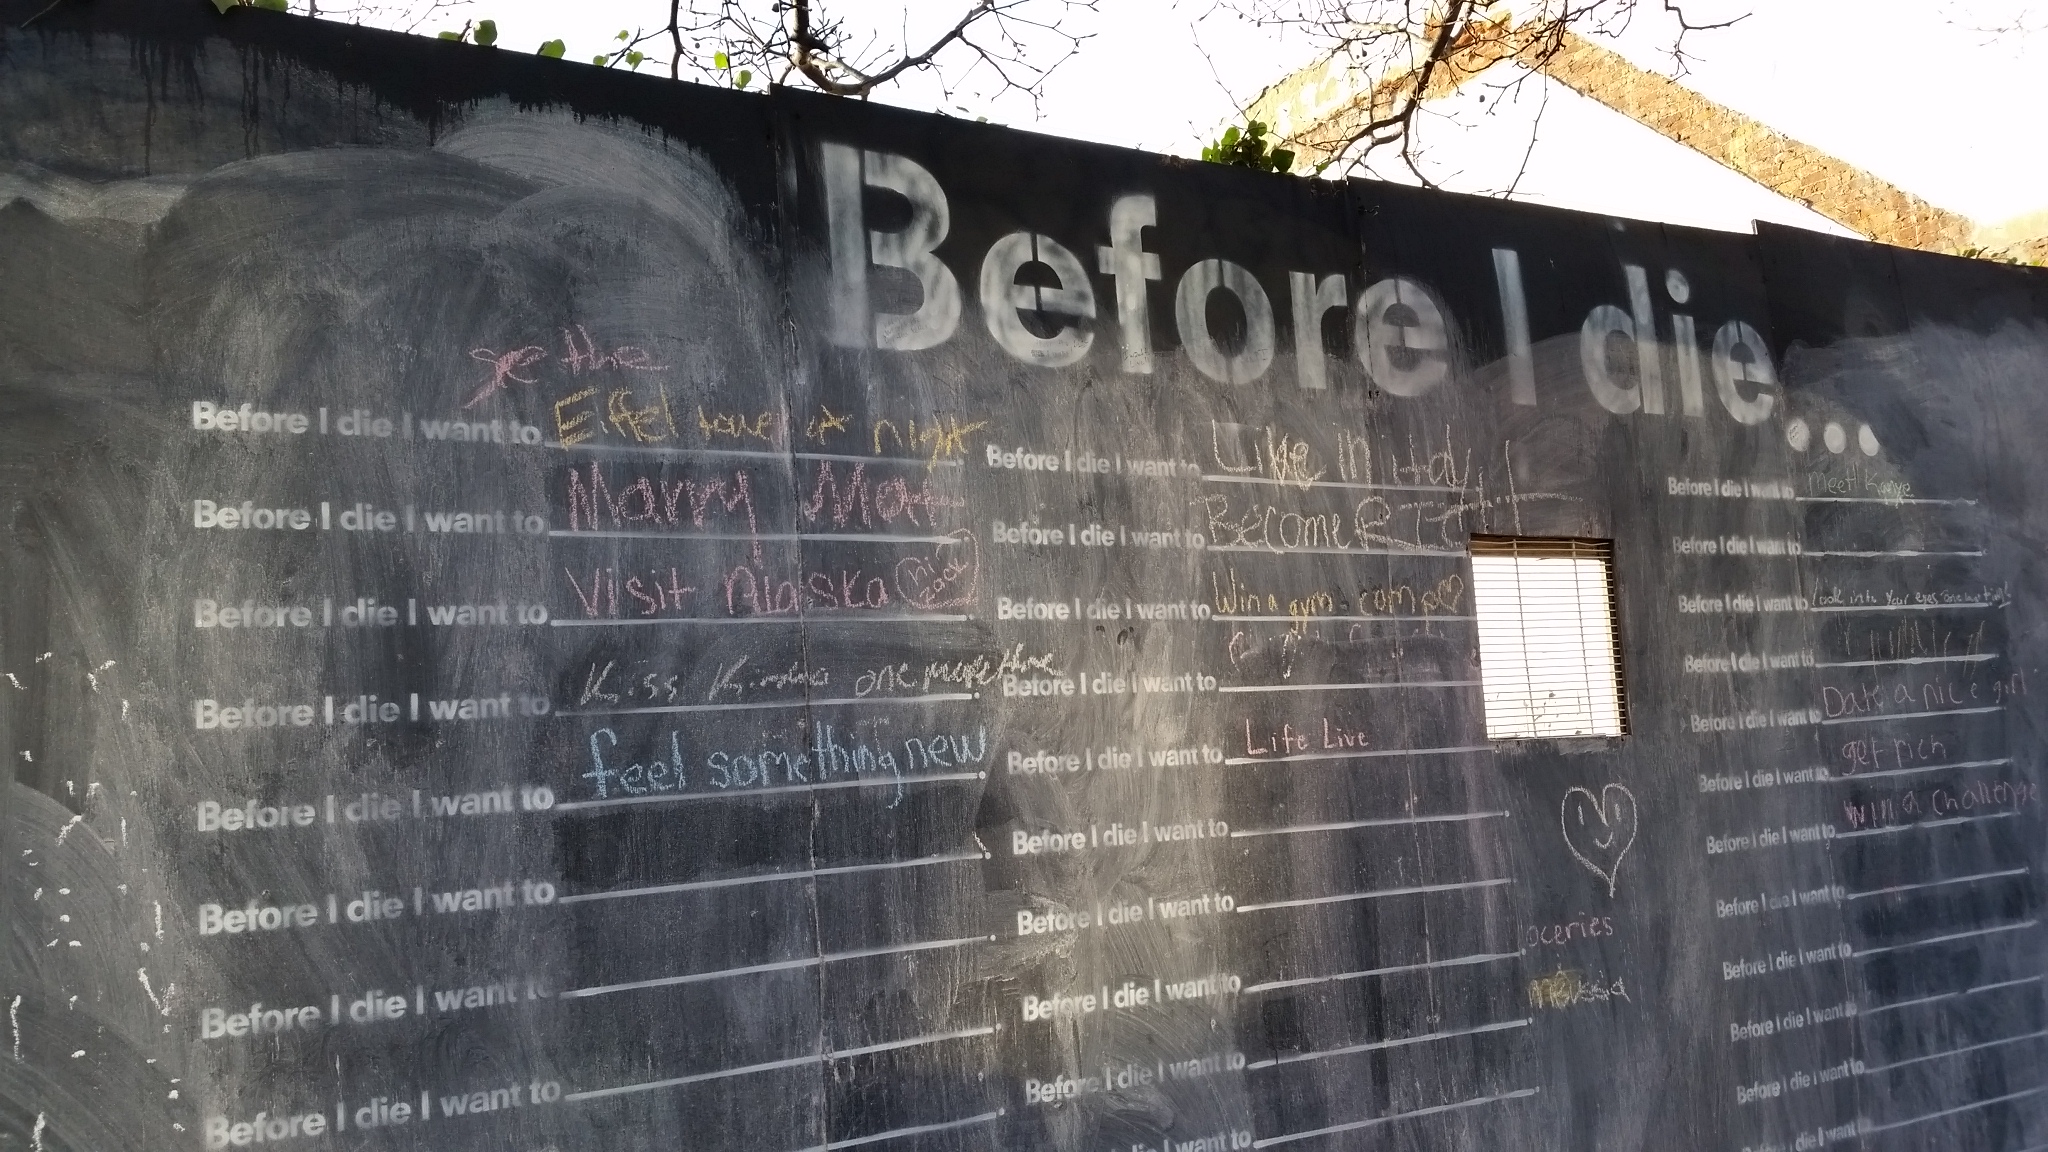 Before I die...
the
Before I die I want to Eiffel tower at night
Before I die I want to Marry Matthew
Before I die I want to Visit Alaska hi zack
Before I die I want to Kiss one more time
Before I die I want to feel something new
Before I die I want to
Before I die I want to
Before I die I want to
Before I die I want to Live in Italy!
Before I die I want to Become RICH!
Before I die I want to Win a gym comp
Before I die I want to
Before I die I want to Life Live
Before I die I want to
Before I die I want to
oceries
Before I die I want to
Before I die I want to
Before I die I want to
Before I die I want to meet Kanye
Before I die I want to
Before I die I want to Look into your eyes one
Before I die I want to
Before I die I want to Date a nice girl
Before I die I want to get rich
Before I die I want to win a challenge
Before I die I want to
Before I die I want to
Before I die I want to
Before I die I want to
Before I die I want to